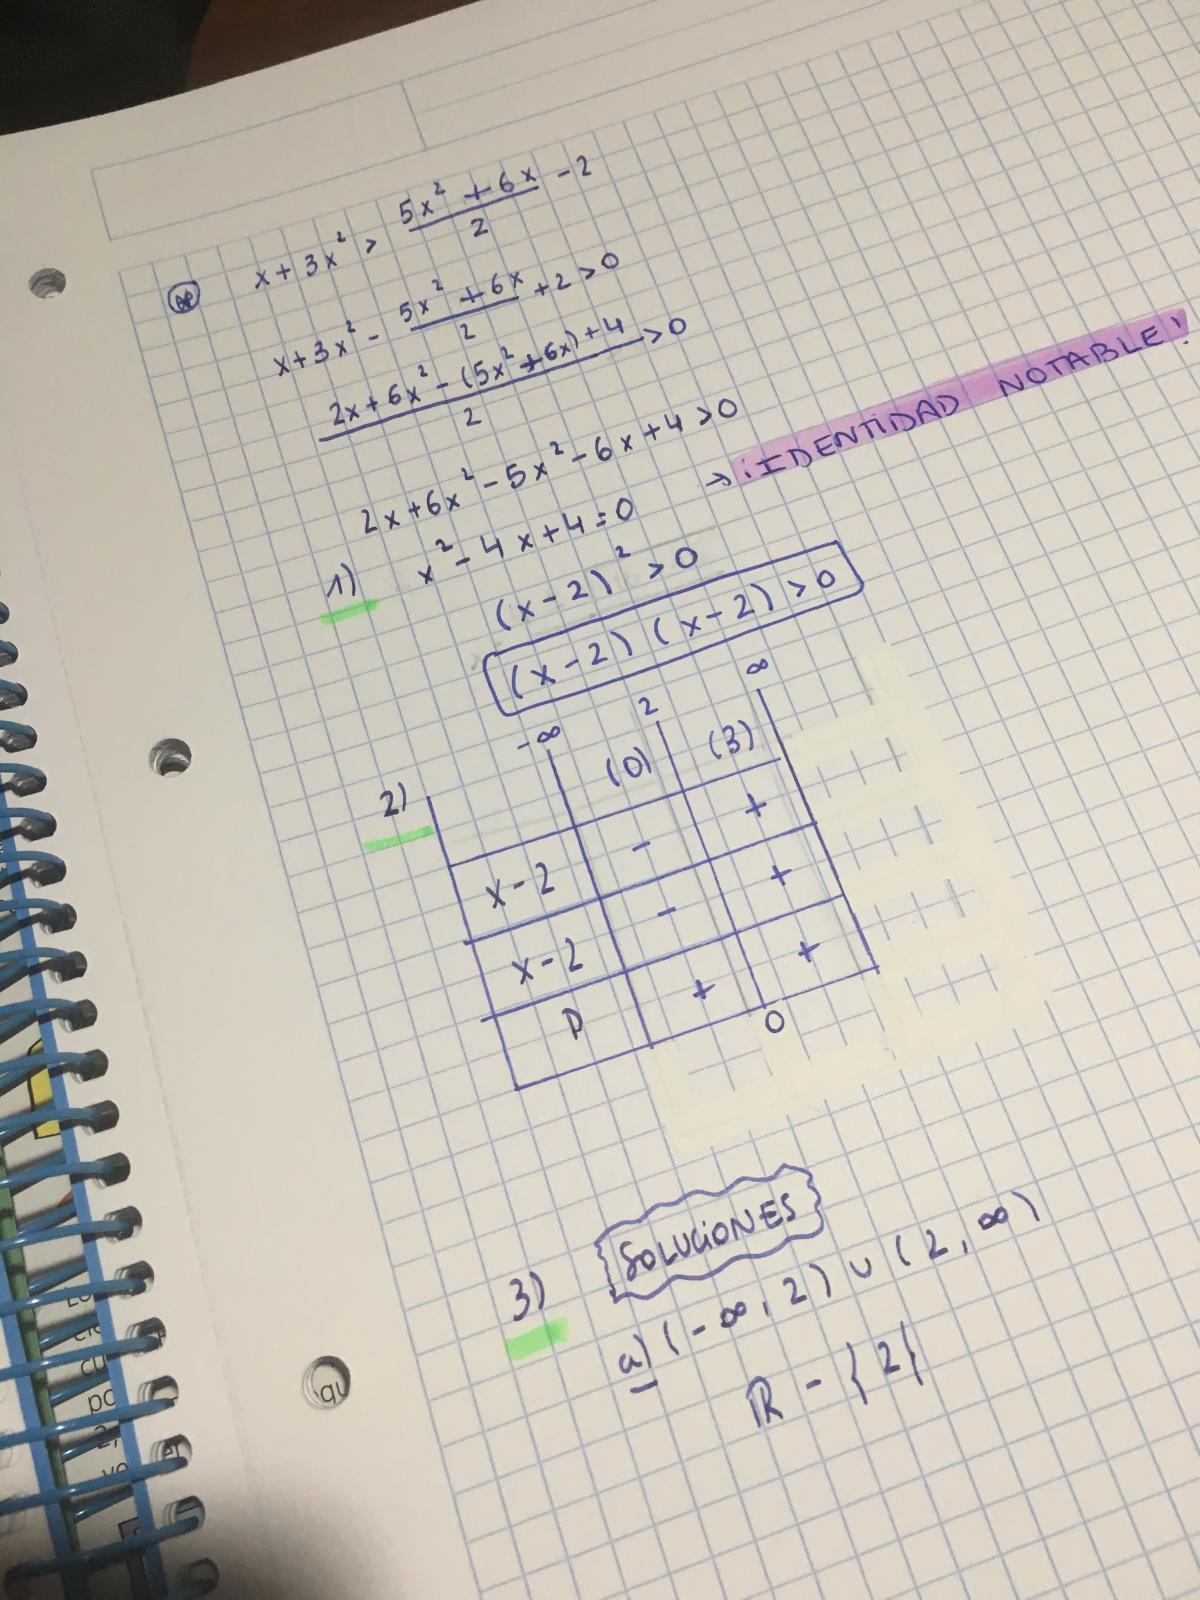 x + 3x² > (5x² + 6x)/2 - 2
x + 3x² - (5x² + 6x)/2 + 2 > 0
(2x + 6x² - (5x² + 6x) + 4)/2 > 0
2x + 6x² - 5x² - 6x + 4 > 0
1) x² - 4x + 4 = 0 → ¡IDENTIDAD NOTABLE!
(x - 2)² > 0
(x - 2) (x - 2) > 0
2) -∞ 2 ∞
(0) (3)
x - 2 - +
x - 2 - +
P + +
0
3) SOLUCIONES
a) (-∞, 2) ∪ (2, ∞)
ℝ - {2}
qu